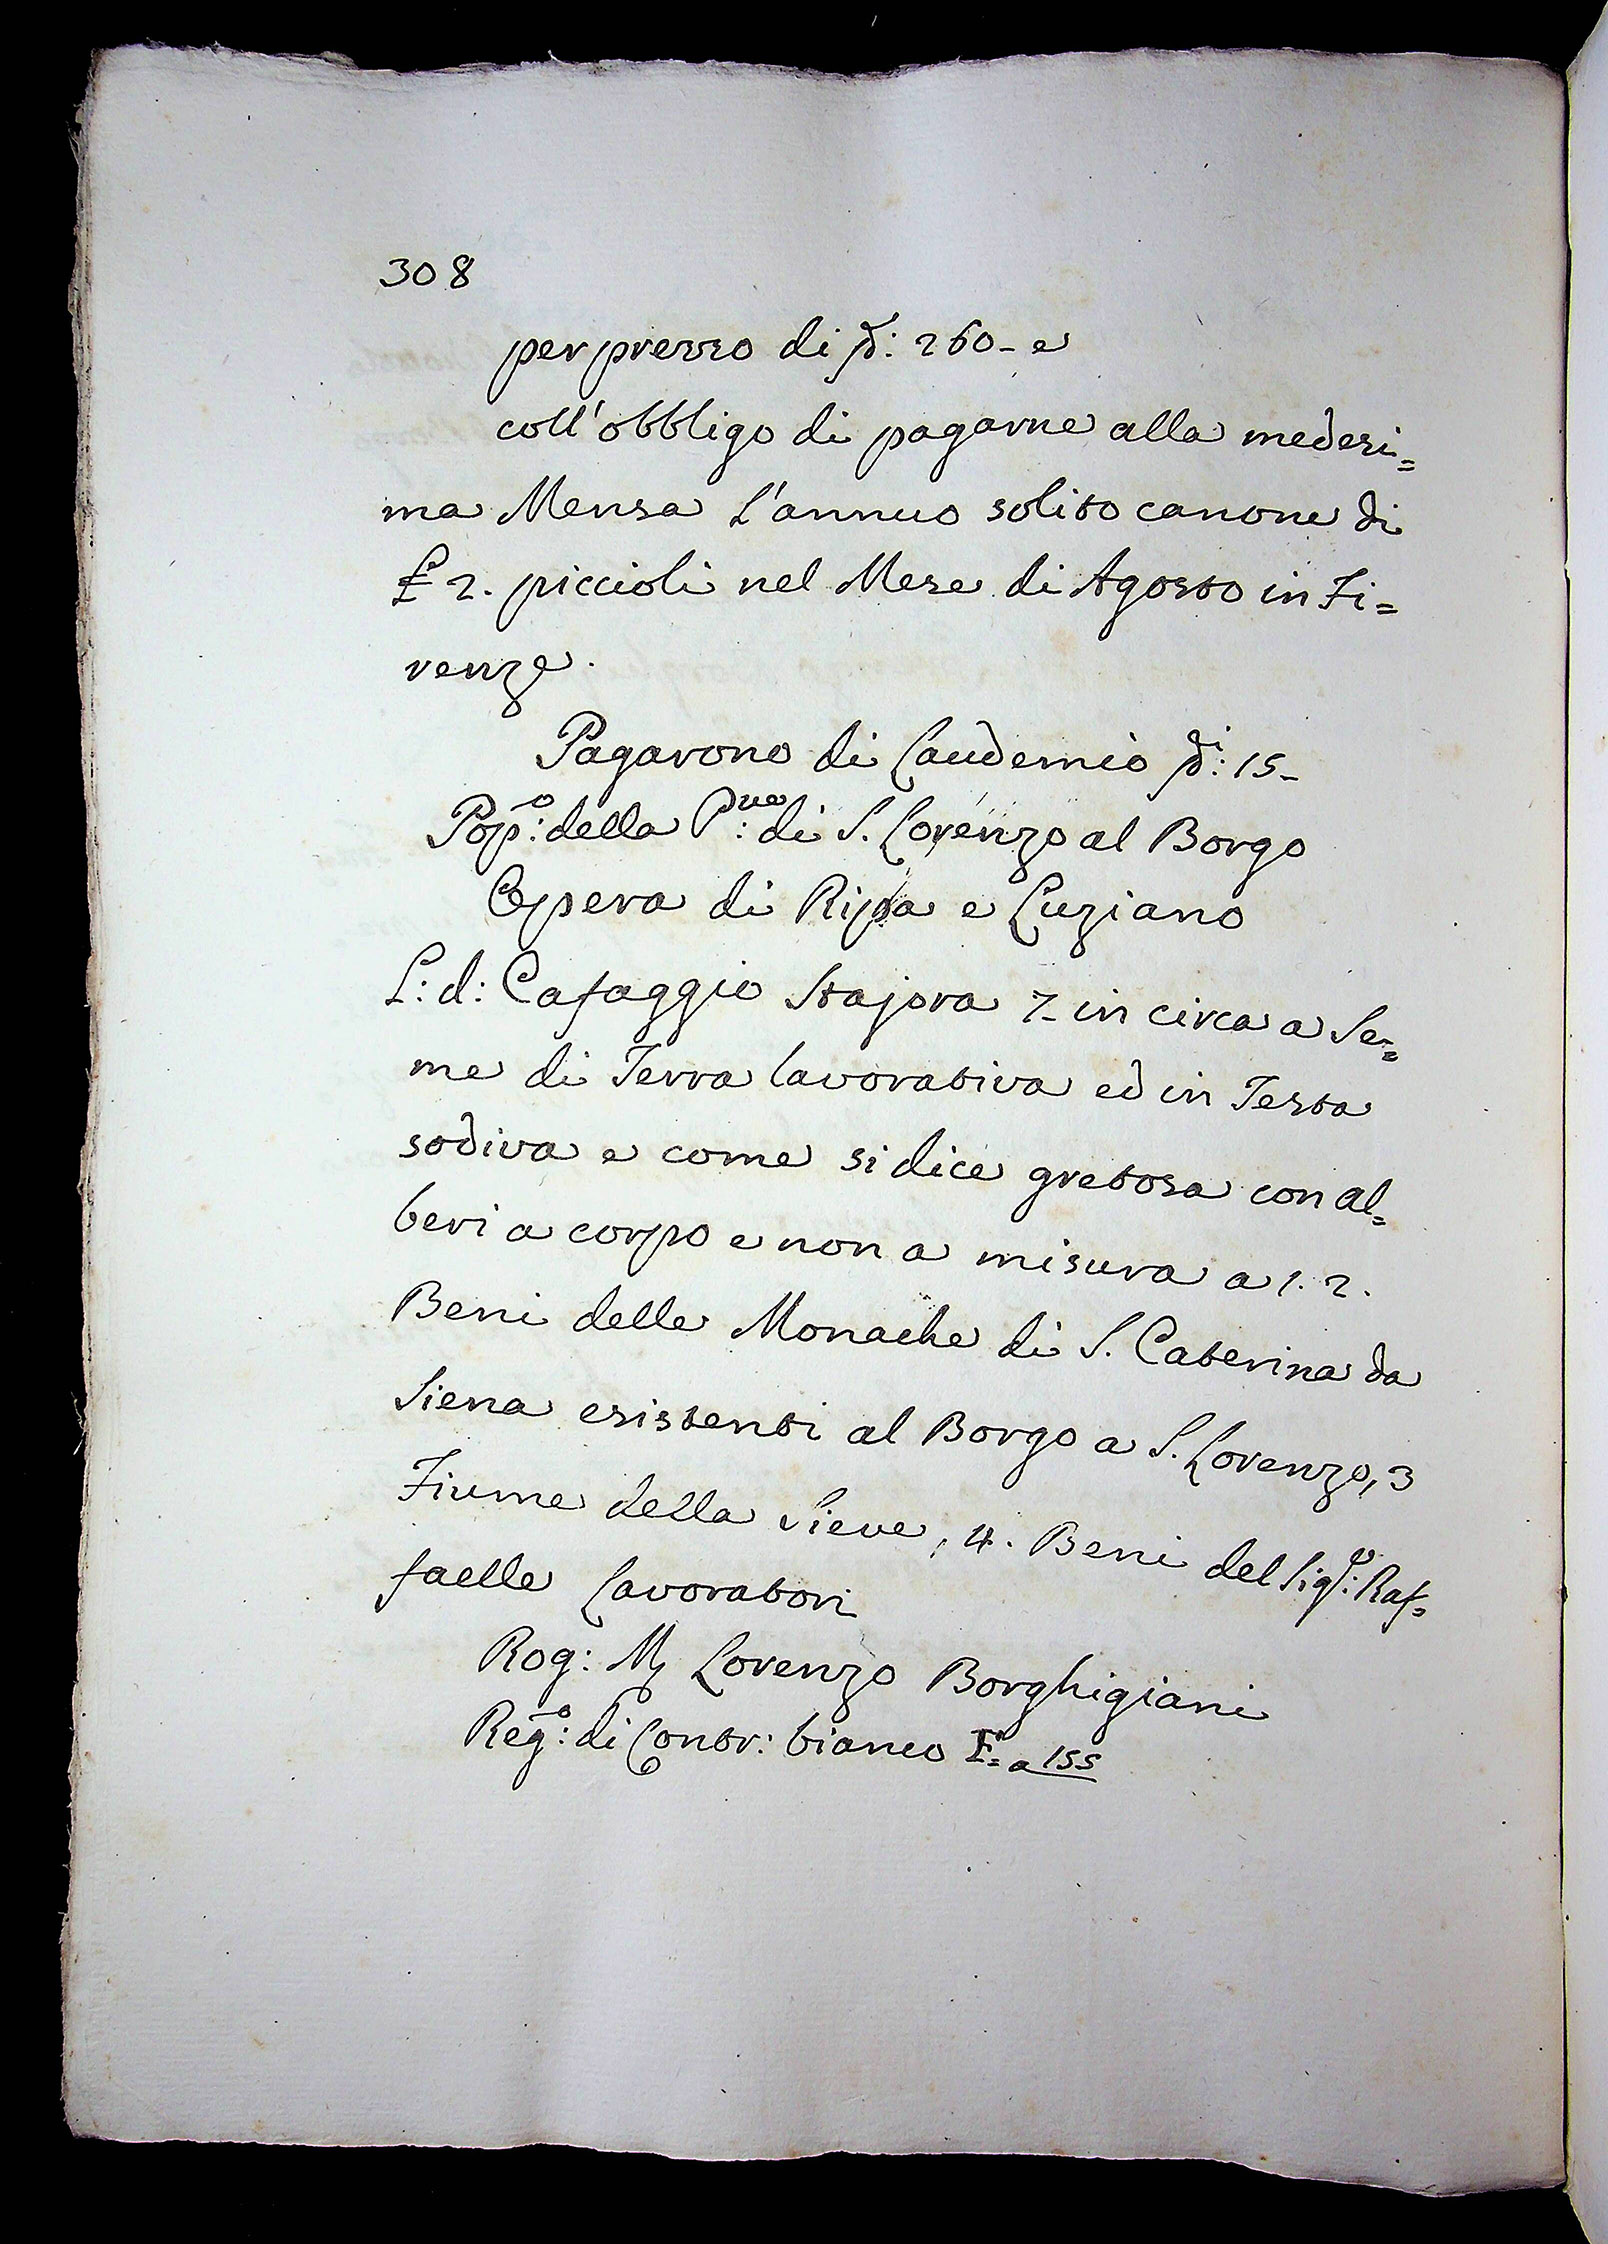 308
per prezzo di ∂: 260 - e
coll'obbligo di pagarne alla medesi=
ma Mensa l'annuo solito canone di
£ 2. piccioli nel Mese di Agosto in Fi=
renze.
Pagarono di Laudemio ∂i: 15 -
Pop:o della P:va di S. Lorenzo al Borgo
Opera di Ripa e Luziano
L: d: Cafaggio Stajora 7 - in circa a Se=
me di Terra lavorativa ed in Testa
sodiva e come si dice gretosa con al=
beri a corpo e non a misura a 1. 2.
Beni delle Monache di S. Caterina da
Siena esistenti al Borgo a S. Lorenzo, 3
Fiume della Sieve, 4. Beni del Sig:r Raf=
faelle Lavoratori
Rog: M Lorenzo Borghigiani
Reg:o di Contr: bianco F= a 155